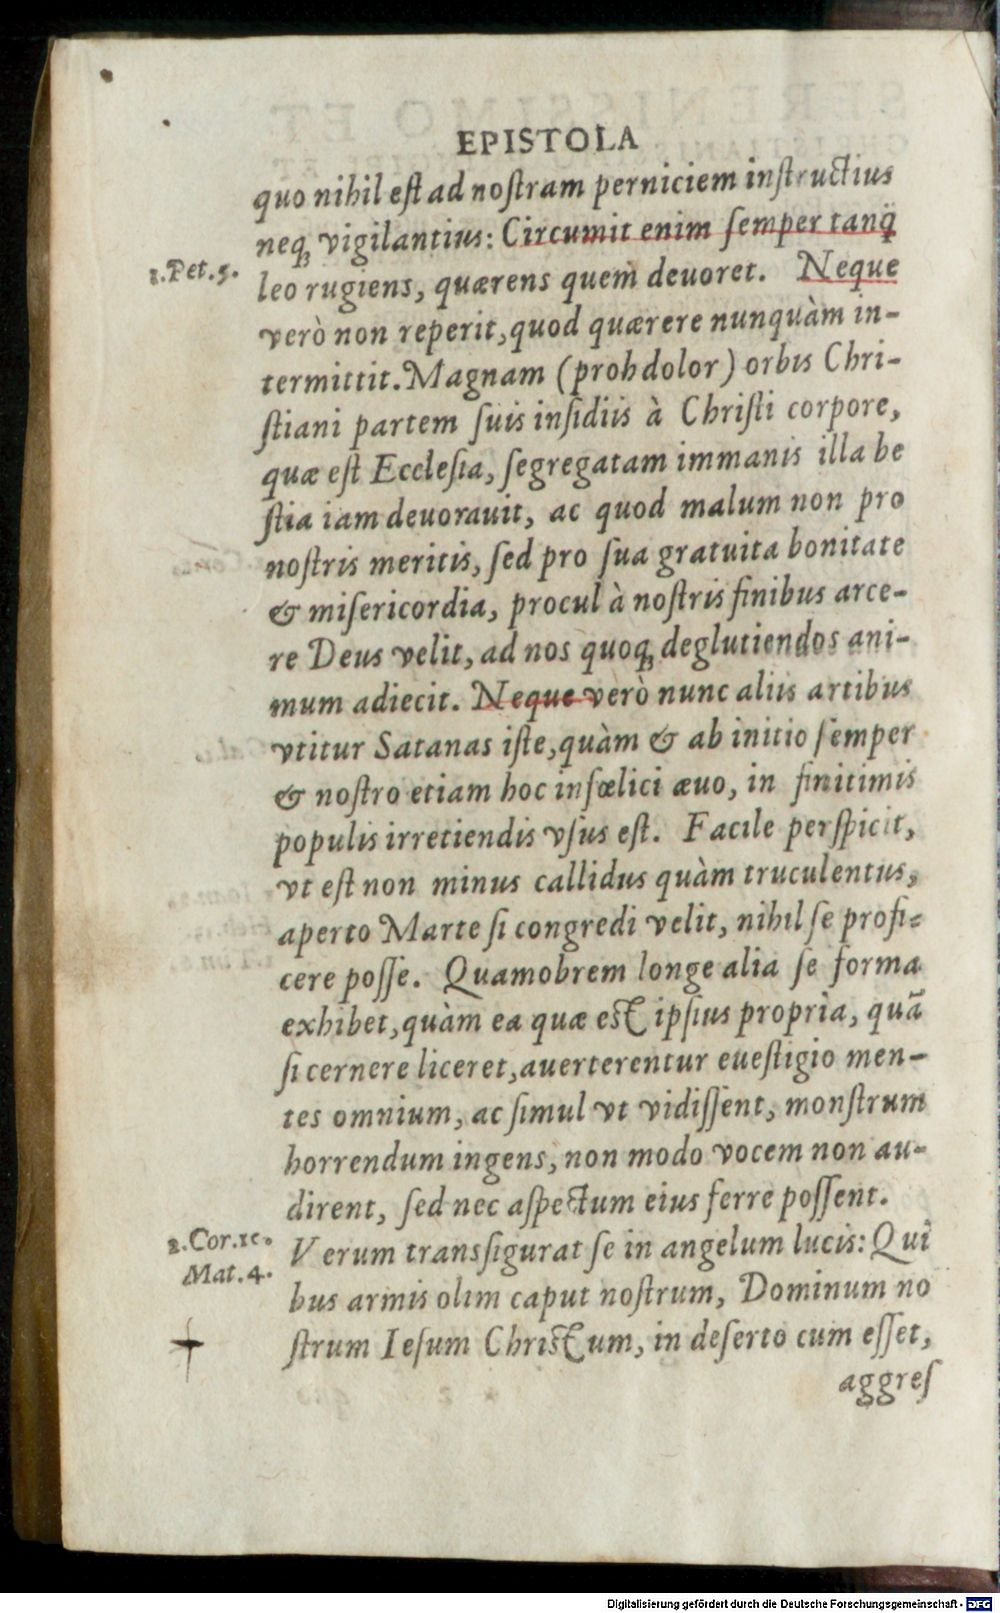 EPISTOLA
quo nihil est ad nostram perniciem instructius
neq; vigilantius: Circumit enim semper tanq̃
1.Pet.5.
leo rugiens, quærens quem deuoret. Neque
verò non reperit, quod quærere nunquàm in-
termittit. Magnam (proh dolor) orbis Chri-
stiani partem suis insidiis à Christi corpore,
quæ est Ecclesia, segregatam immanis illa be
stia iam deuorauit, ac quod malum non pro
nostris meritis, sed pro sua gratuita bonitate
& misericordia, procul à nostris finibus arce-
re Deus velit, ad nos quoq; deglutiendos ani-
mum adiecit. Neque verò nunc aliis artibus
vtitur Satanas iste, quàm & ab initio semper
& nostro etiam hoc infœlici æuo, in finitimis
populis irretiendis vsus est. Facile perspicit,
vt est non minus callidus quàm truculentus,
aperto Marte si congredi velit, nihil se profi-
cere posse. Quamobrem longe alia se forma
exhibet, quàm ea quæ est ipsius propria, quã
si cernere liceret, auerterentur euestigio men-
tes omnium, ac simul vt vidissent, monstrum
horrendum ingens, non modo vocem non au-
dirent, sed nec aspectum eius ferre possent.
2.Cor.11.
Verum transsigurat se in angelum lucis: Qui
Mat.4.
bus armis olim caput nostrum, Dominum no
strum Iesum Christum, in deserto cum esset,
aggres
Digitalisierung gefördert durch die Deutsche Forschungsgemeinschaft - DFG